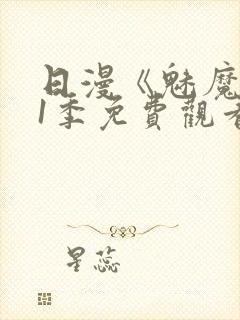 日漫《魅魔
1季免費觀看
星蕊